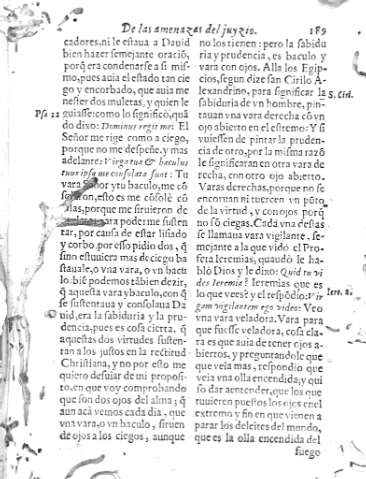 De las amenazas del juyzio. 189
cadores, ni le estaua a Dauid
bien hazer semejante oraciõ,
porq̃ era condenarse a si mis-
mo, pues auia el estado tan cie
go y encorbado, que auia me
nester dos muletas, y quien le
guiasse: como lo significò, quã
do dixo: Dominus regit me: El
Señor me rige como a ciego,
porque no me despeñe. y mas
adelante: Virga tua & baculus
tuus ipsa me consolata sunt: Tu
vara Señor y tu baculo, me cõ
esto es me cõsolè cõ
porque me siruieron de
vara poder me susten-
tar, por causa de estar lisiado
y corbo. por esso pidio dos, q̃
sino estuuiera mas de ciego ba
stauale, o vna vara, o vn bacu
lo: biẽ podemos tãbien dezir,
q̃ aquesta vara y baculo, con q̃
se sustentaua y consolaua Da
uid, era la sabiduria y la pru-
dencia, pues es cosa cierta, q̃
aquestas dos virtudes susten-
tan a los justos en la rectitud
Christiana, y no por esto me
quiero desuiar de mi proposi-
to, en que voy comprobando
que son dos ojos del alma; q̃
aun acà vemos cada dia, que
vna vara, o vn baculo, siruen
de ojos a los ciegos, aunque
Psa 22
no los tienen: pero la sabidu
ria y prudencia, es baculo y
vara con ojos. Alla los Egip-
cios, segun dize san Cirilo A-
lexandrino, para significar la
sabiduria de vn hombre, pin-
tauan vna vara derecha cõ vn
ojo abierto en el estremo: Y si
vuiessen de pintar la pruden-
cia de otro, por la misma razõ
le significaran en otra vara de
recha, con otro ojo abierto.
Varas derechas, porque no se
encoruan ni tuercen vn pũto
de la virtud, y con ojos porq̃
no sõ ciegas. Cada vna destas
se llamaua vara vigilante, se-
mejante a la que vidò el Pro-
feta Ieremias, quaudo le ha-
blò Dios y le dixo: Quid tu vi
des Ieremia? Ieremias que es
lo que vees? y el respõdio: Vir
gam vigilantem ego video: Veo
vna vara veladora. Vara para
que fuesse veladora, cosa cla-
ra es que auia de tener ojos a-
biertos, y preguntandole que
que veia mas, respondio que
veia vna olla encendida; y qui
so dar aentender, que los que
tuuieren puestos los ojos en el
extremo y fin en que vienen a
parar los deleites del mundo,
que es la olla encendida del
fuego
S. Ciri.